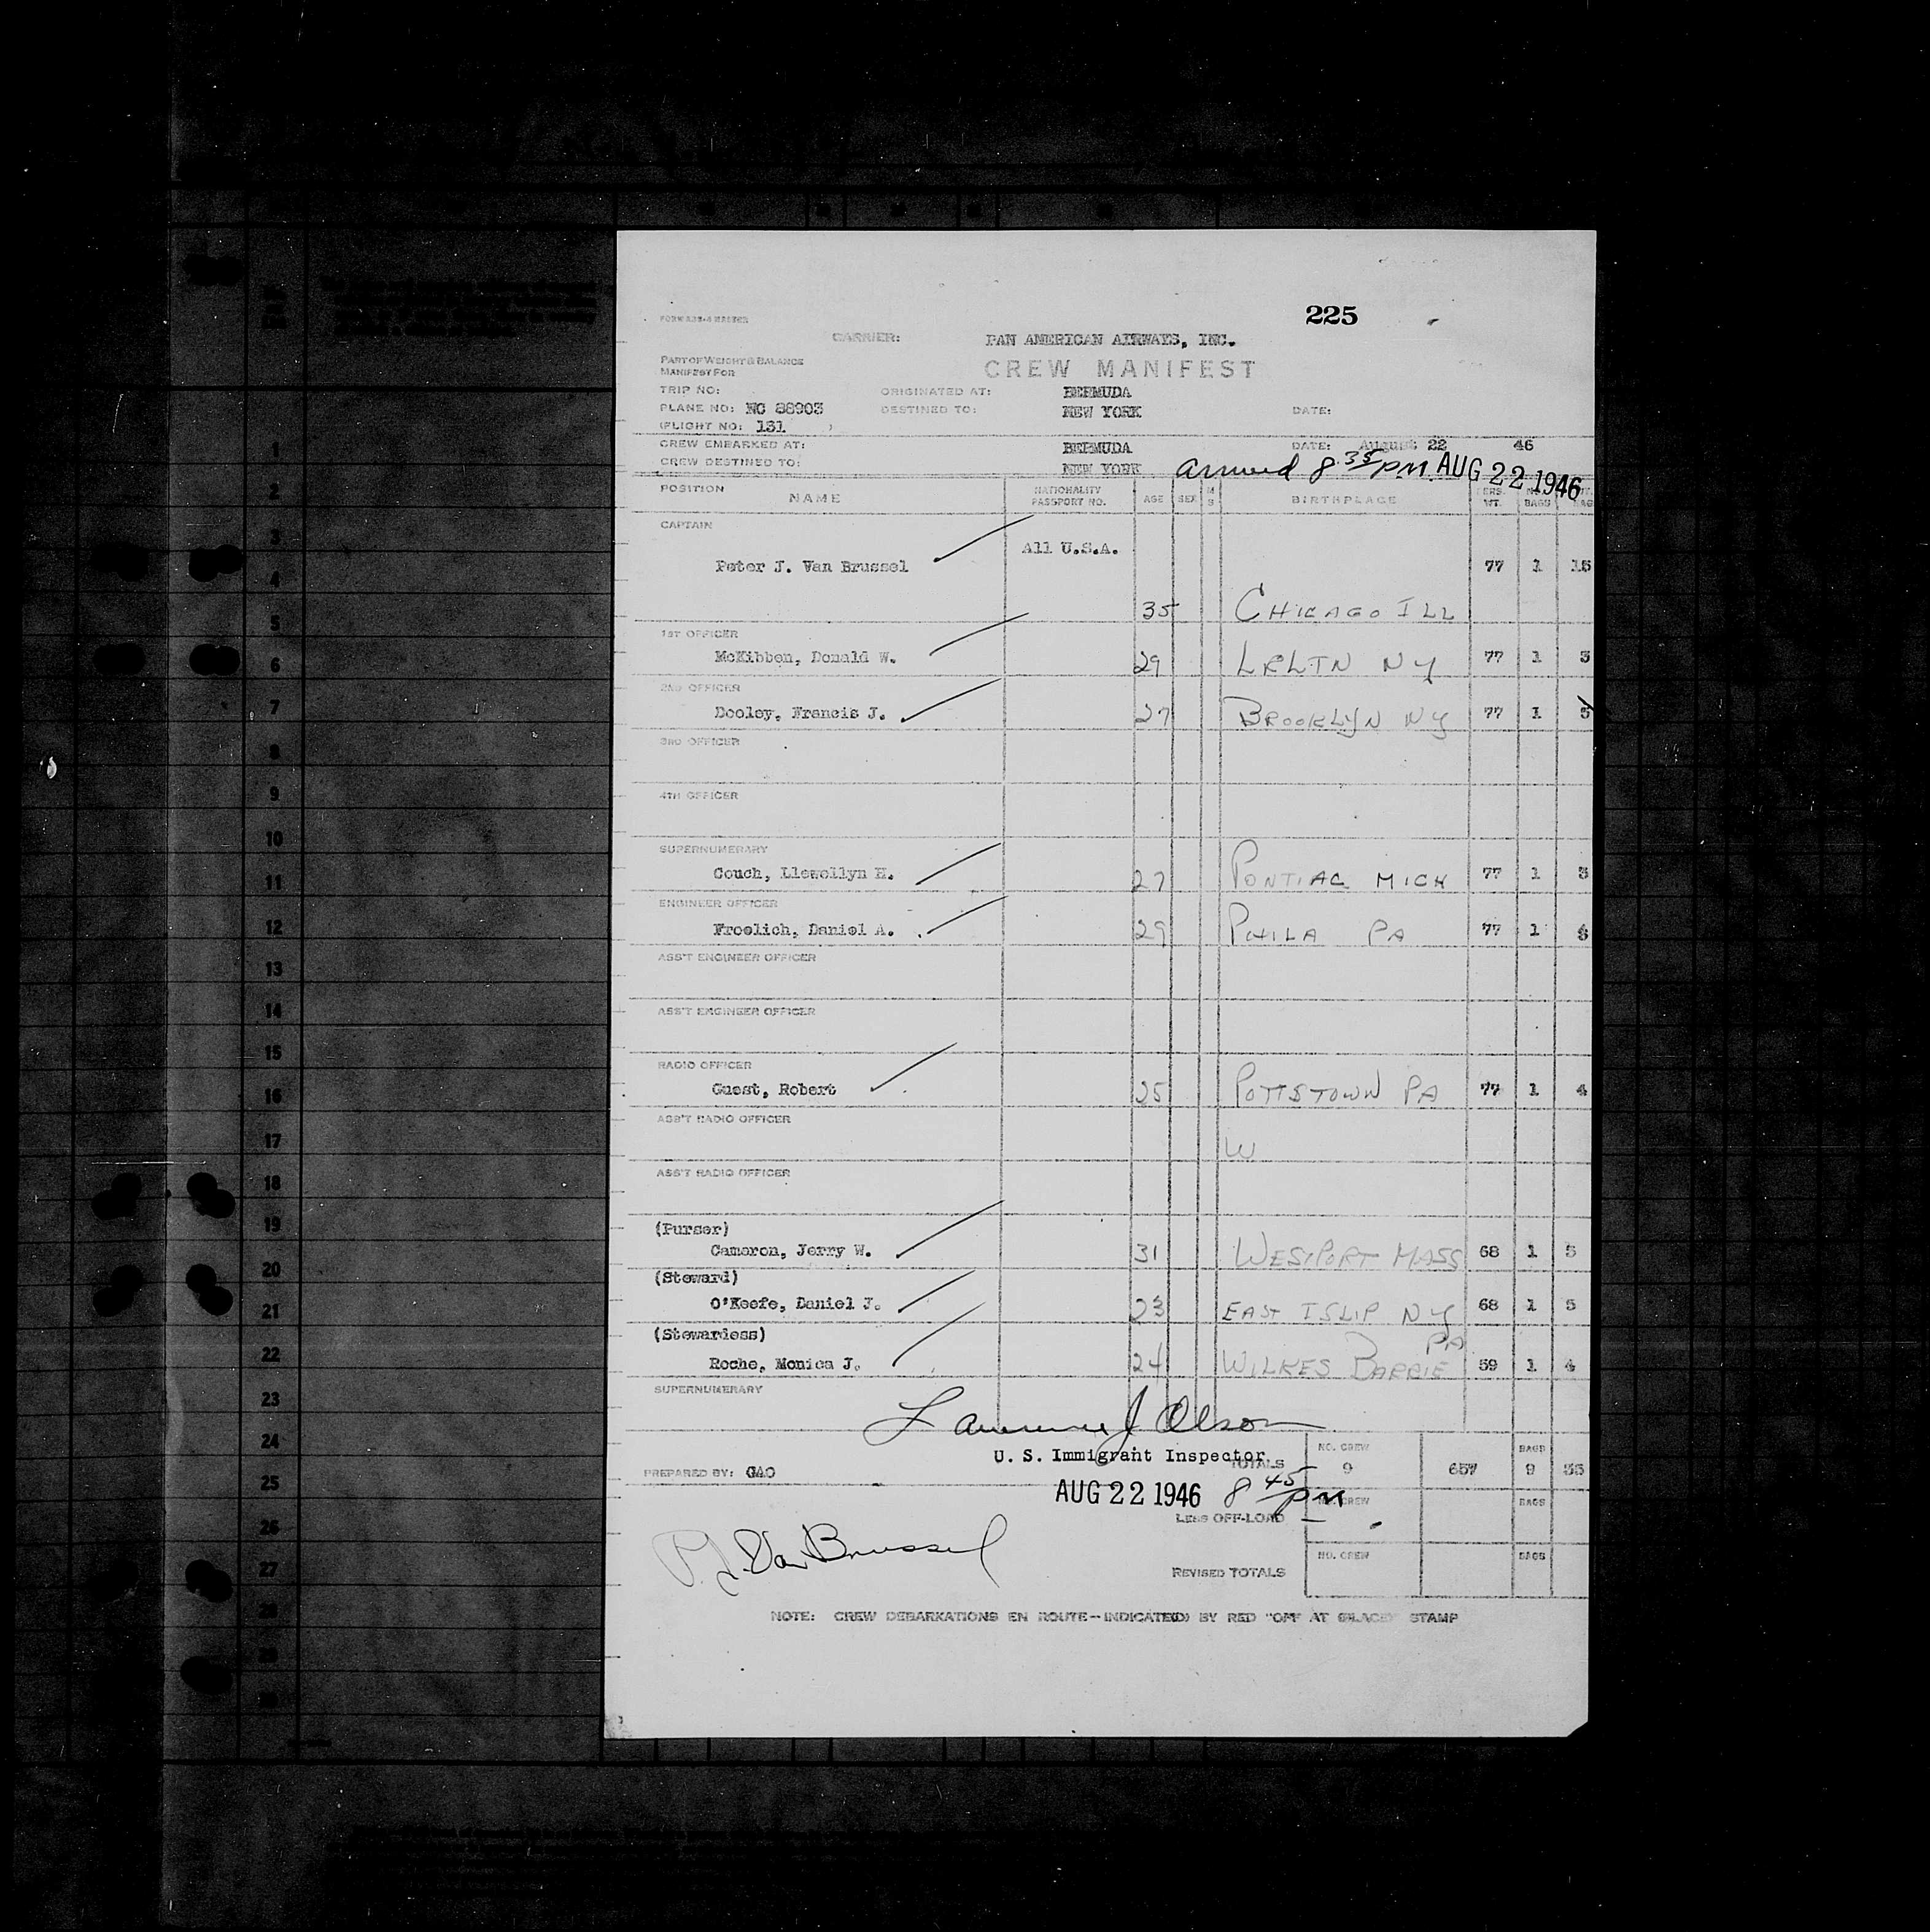 225
CARRIER: PAN AMERICAN AIRWAYS, INC.
PART OF WEIGHT & BALANCE
MANIFEST FOR
CREW MANIFEST
TRIP NO: ORIGINATED AT: BERMUDA
PLANE NO: NC 88903 DESTINED TO: NEW YORK DATE:
(FLIGHT NO: 131 )
CREW EMBARKED AT: BERMUDA DATE: August 22 46
CREW DESTINED TO: NEW YORK
arrived 8 35/PM AUG 22 1946
POSITION NAME NATIONALITY PASSPORT NO. AGE SEX M S BIRTHPLACE PERS. WT. BAGS
CAPTAIN
All U.S.A.
Peter J. Van Brussel 77 1 15
35 CHICAGO ILL
1ST OFFICER
McKibben, Donald W. 29 NY 77 1 5
2ND OFFICER
Dooley, Francis J. 27 BROOKLYN NY 77 1 5
3RD OFFICER
4TH OFFICER
SUPERNUMERARY
Couch, Llewellyn H. 27 PONTIAC MICH 77 1 5
ENGINEER OFFICER
Froelich, Daniel A. 29 PHILA PA 77 1
ASS'T ENGINEER OFFICER
ASS'T ENGINEER OFFICER
RADIO OFFICER
Guest, Robert 25 POTTSTOWN PA 77 1 4
ASS'T RADIO OFFICER
W
ASS'T RADIO OFFICER
(Purser)
Cameron, Jerry W. 31 WESTPORT MASS 68 1 5
(Steward)
O'Keefe, Daniel J. 23 EAST ISLIP NY 68 1 5
(Stewardess)
PA
Roche, Monica J. 24 WILKES BARRIE 59 1 4
SUPERNUMERARY
Lawrence J Olson
U. S. Immigrant Inspector
TOTALS NO. CREW 9 657 BAGS 9 55
PREPARED BY: GAO
AUG 22 1946 8 45/PM
NO. CREW BAGS
LESS OFF-LOAD
P. J. Van Brussel
NO. CREW BAGS
REVISED TOTALS
NOTE: CREW DEBARKATIONS EN ROUTE—INDICATED BY RED "OFF AT (PLACE)" STAMP
1
2
3
4
5
6
7
8
9
10
11
12
13
14
15
16
17
18
19
20
21
22
23
24
25
26
27
28
29
30